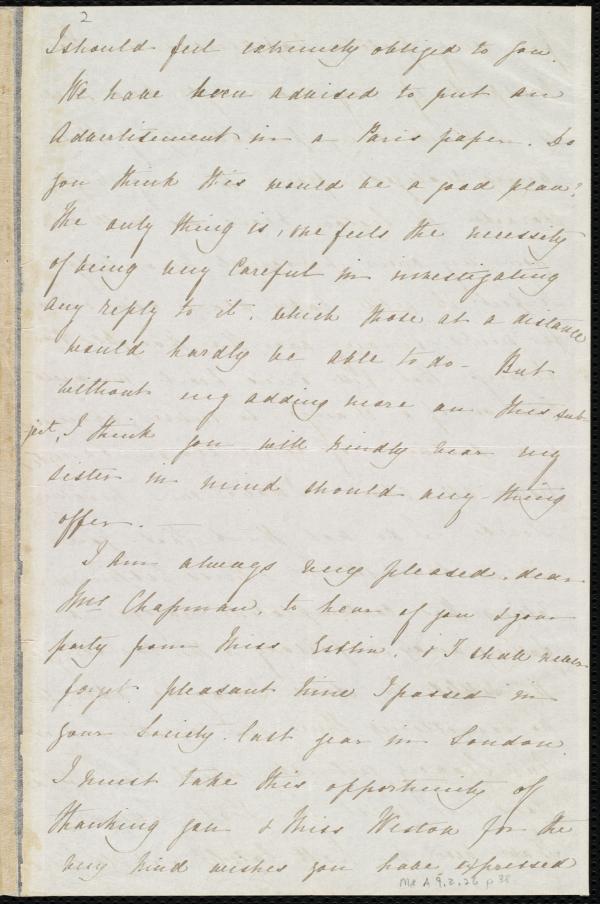 2
I should feel extremely obliged to you.
We have been advised to put an
Advertisement in a Paris paper. Do
you think this would be a good plan?
The only thing is, one feels the necessity
of being very careful in investigating
any reply to it, which those at a distance
would hardly be able to do - But
without my adding more on this sub-
ject, I think you will kindly bear my
sister in mind should any-thing
offer. —
I am always very pleased, dear
Mrs Chapman, to hear of you & your
party from Miss Estlin, & I shall never
forget pleasant time I passed in
your Society last year in London.
I must take this opportunity of
thanking you & Miss Weston for the
very kind wishes you have expressed
Ms A 9.2.26 p 38